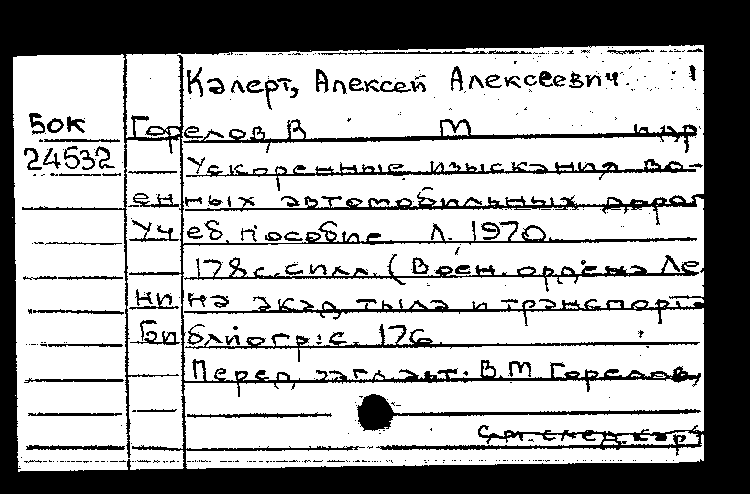 Калерт, Алексей Алексеевич 1
БОК Горелов, В М и др
24532 Ускоренные изыскания во-
енных автомобильных дорог
Учеб. пособие Л. 1970
178 с. с илл. (Воен. ордена Ле-
нина акад. тыла и транспорта
Библиогр: с. 176
Перед загл. авт.: В.М Горелов,
См. след. карт